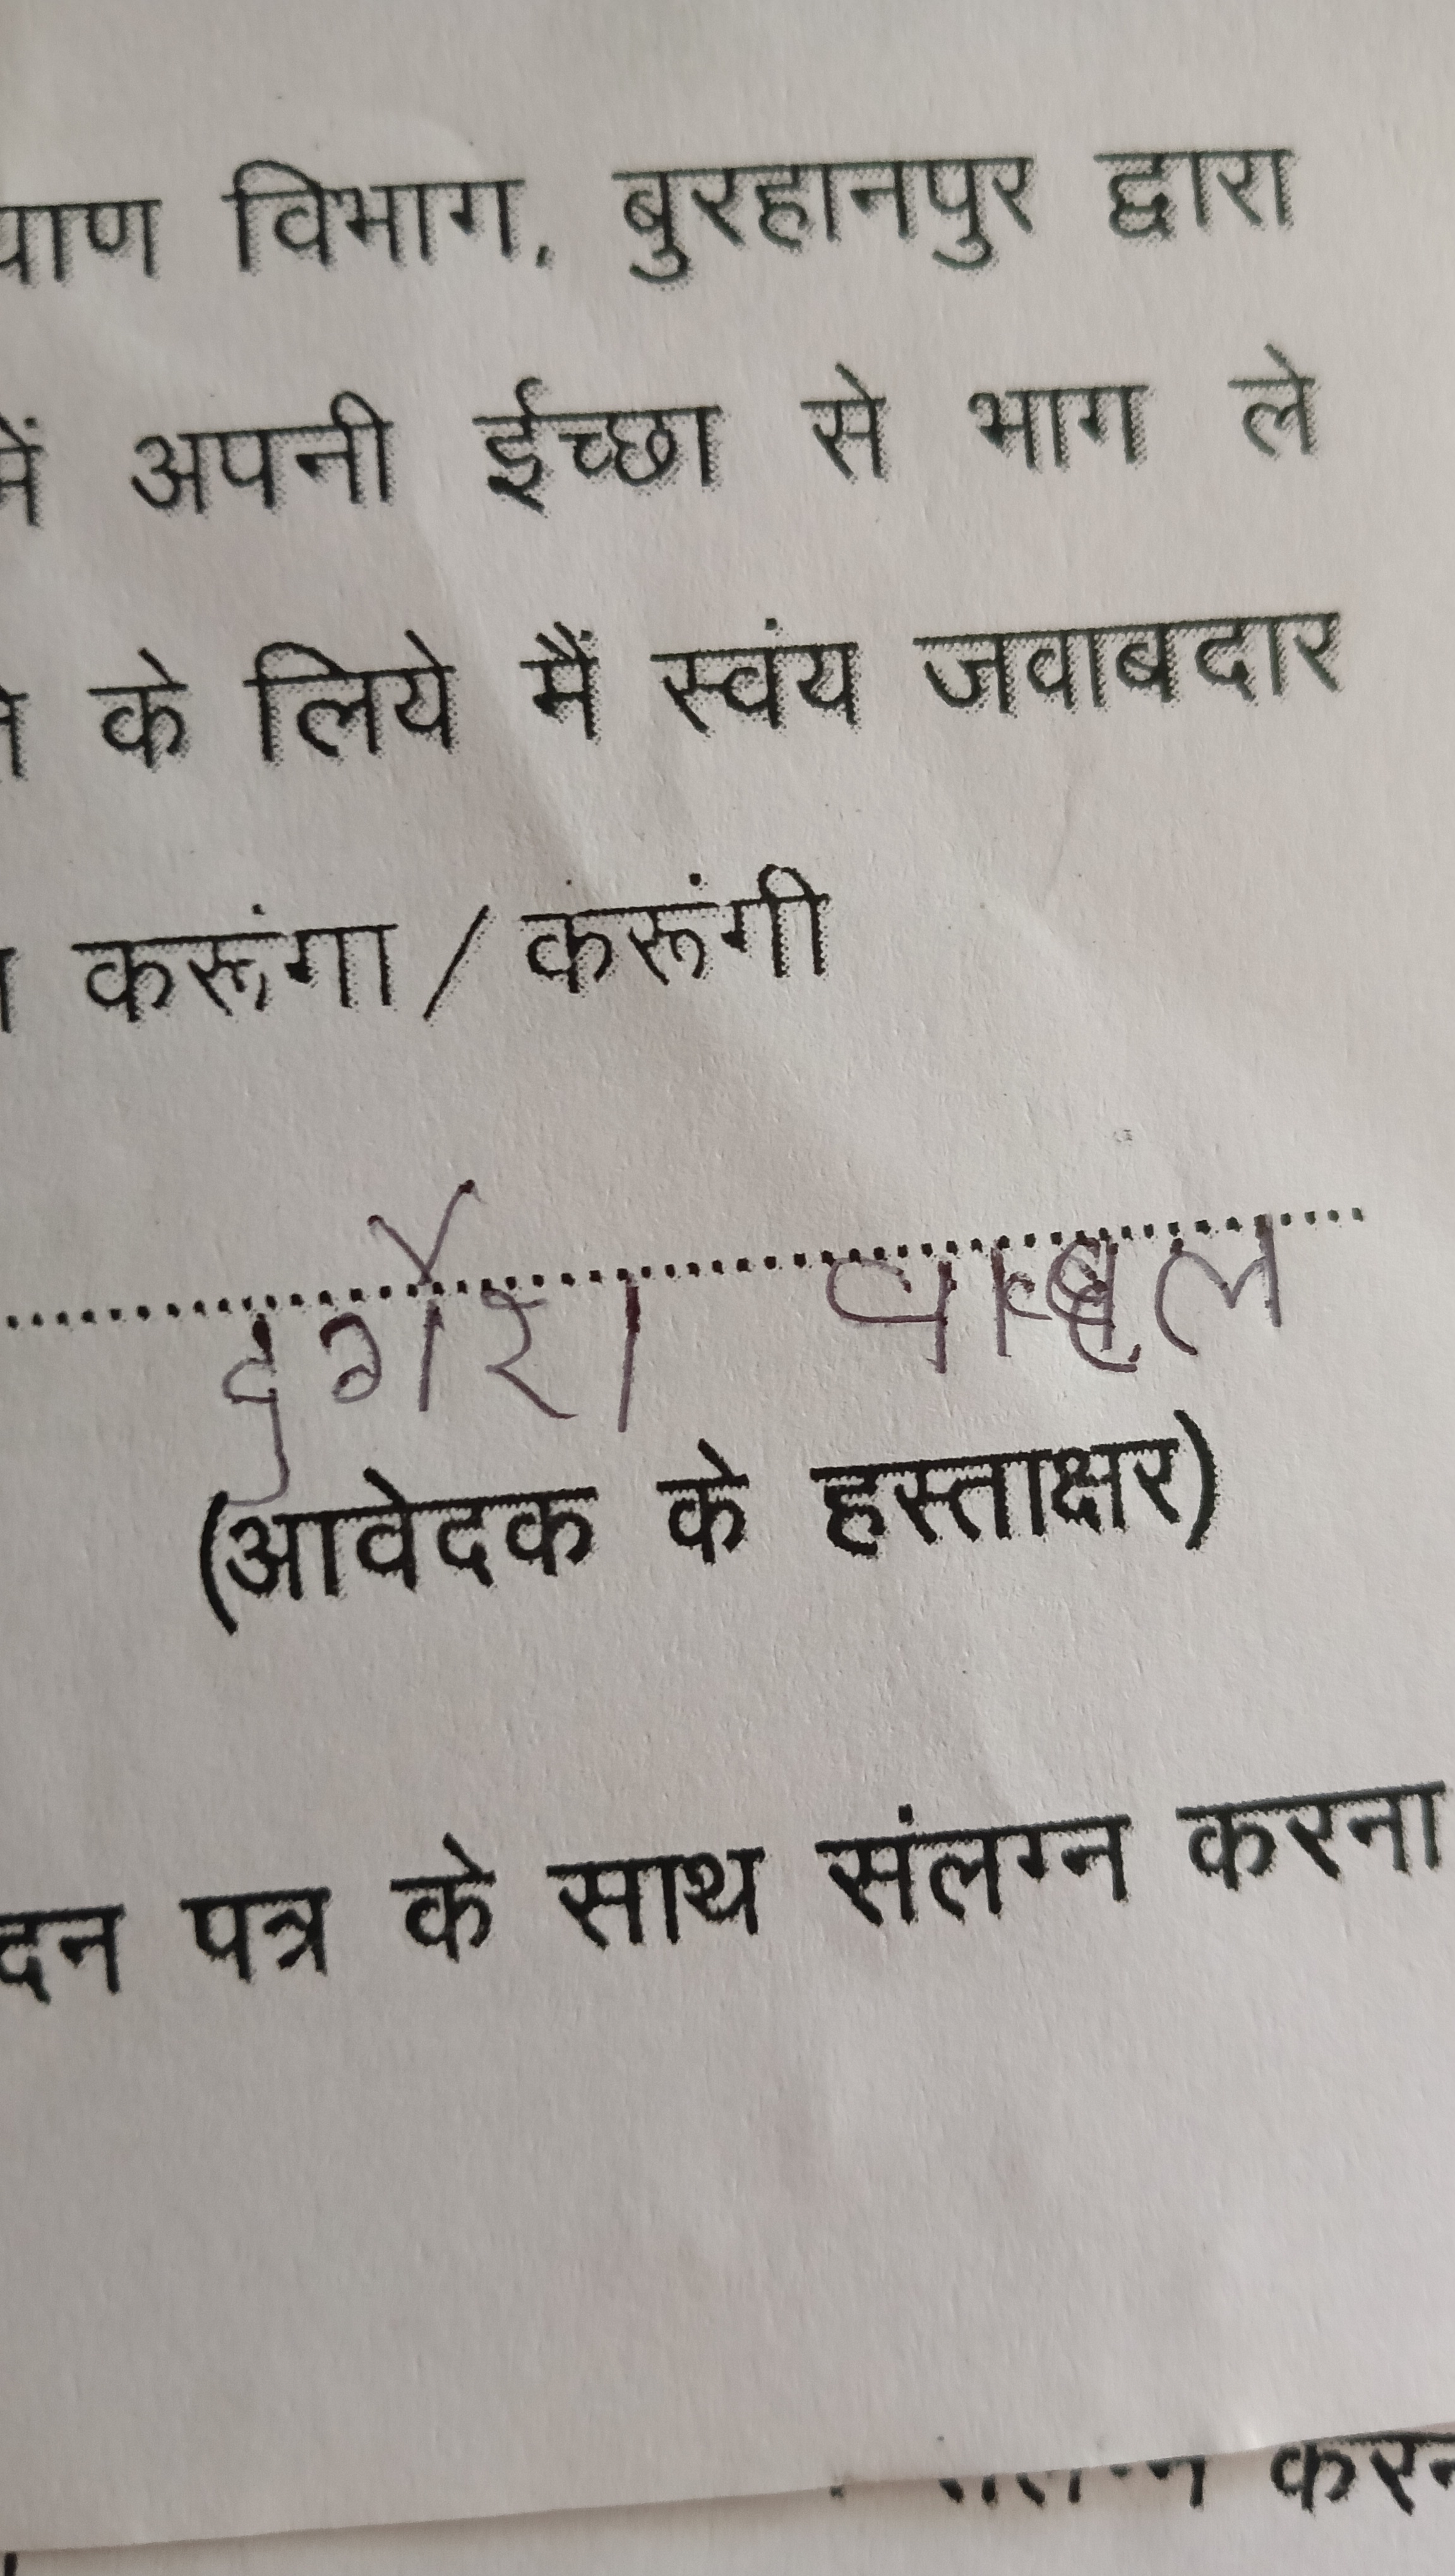 याण विभाग, बुरहानपुर द्वारा
में अपनी ईच्छा से भाग ले
के लिये मैं स्वंय जवाबदार
करूंगा / करूंगी
दुर्गेश
(आवेदक के हस्ताक्षर)
दन पत्र के साथ संलग्न करना